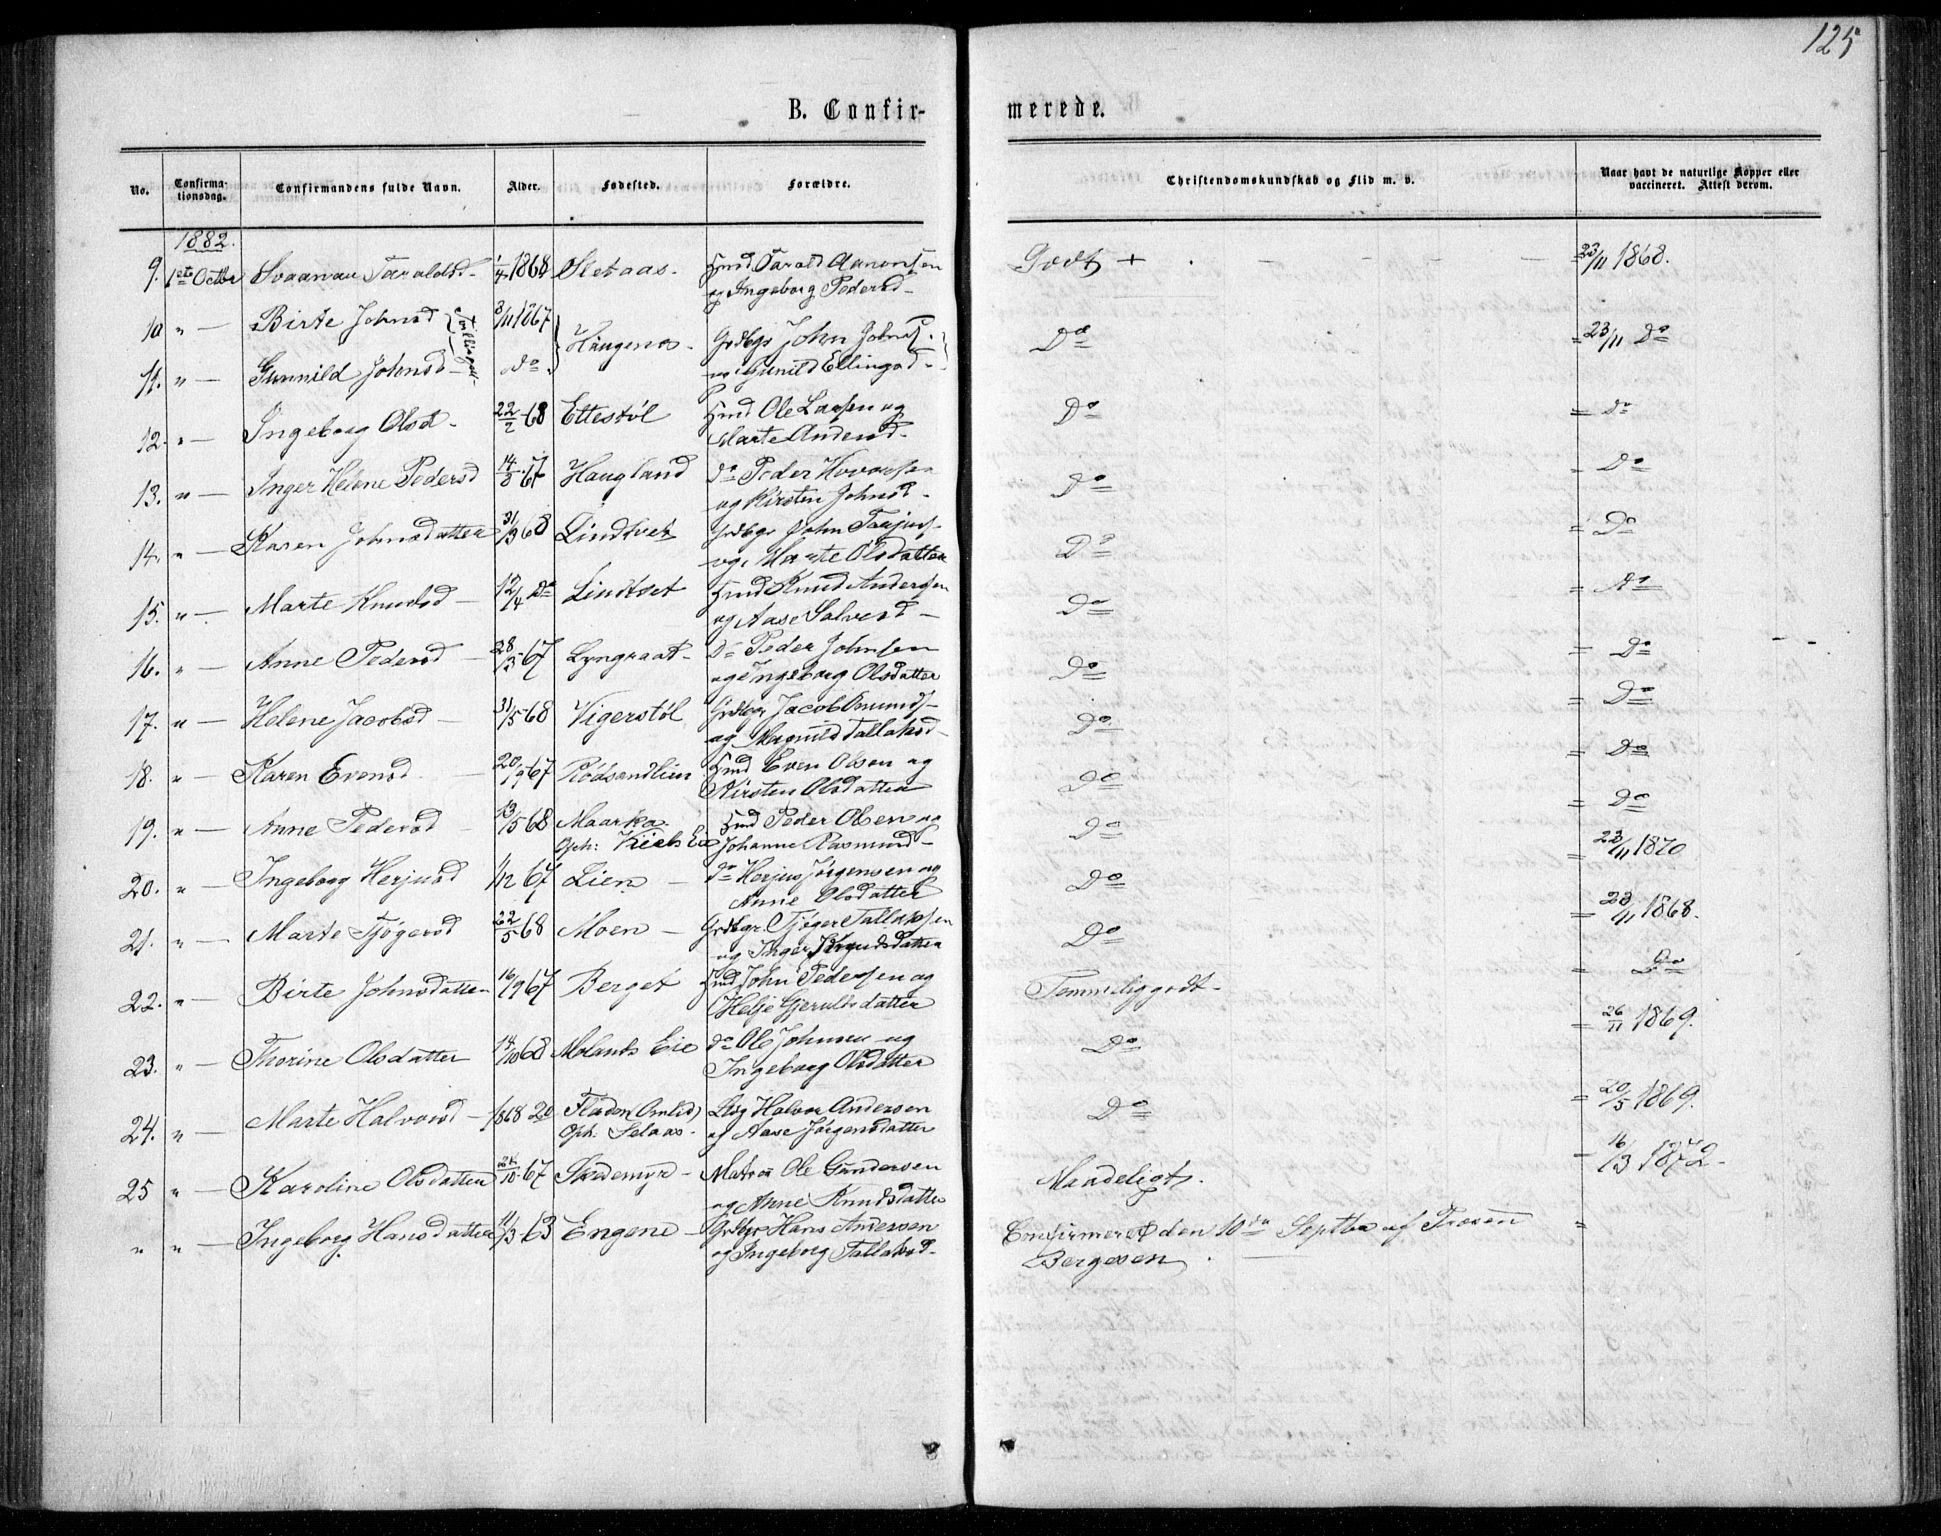 125
B. Confirmerede.
No. Confirmationsdag. Confirmandens fulde Navn. Alder. Fødested. Forældre. Christendomskundskab og Flid m. v. Naar havt de naturlige Kopper eller vaccineret. Attest derom.
1882.
9. 1ste Octbr Svaanau Taraldsd. 1/4 1868 Sletaas. Hmd Tarald Aanonsen Godt + 23/11 1868.
og Ingeborg Pedersd
10 " Birte Johnsd 3/11 1867 Haugenes. Grdbgr John Johns. Do 23/11 Do
Tvillinger
11. " Gunnild Johnsd Do og Gunild Ellingsd
12. " Ingeborg Olsd. 22/2 68 Ettestøl Hmd Ole Larsen og Do = Do
Marte Andersd.
13. " Inger Helene Pedersd 67 Haugland Do Peder Do = Do
og Kirsten Johnsd
14. " Karen Johnsdatter 31/3 68 Lindtveit Grdbgr John Do = Do
og Marte Olsdatter
15. " Marte Knudsd 12/4 Do Lindtvet Hmd Knud Andersen Do = Do
og Aase Salvesd
16. " Anne Pedersd 28/3 67 Lyngraat Do Peder Johnsen Do = Do
og Ingeborg Olsdatter
17. " Helene Jacobsd 31/5 68 Vigerstøl Grdbgr Jacob Omunds Do = Do
og Magnild Tallaksd
18. " Karen Evensd 20/9 67 Rødsandlien Hmd Even Olsen og Do = Do
Kirsten Olsdatter
19. " Anne Pedersd 13/5 68 Maarka. Hmd Peder Olsen og Do = Do
Oph: Eie Johanne Rasmusd
20. " Ingeborg Herjusd 1/12 67 Lien Do Herjus Jørgensen og Do = 23/11 1870
Anne Olsdatter
21. " Marte Tjøgersd 22/5 68 Moen Grdbgr. Tjøger Tallaksen Do = 23/11 1868.
og Inger Knudsdatter
22. " Birte Johnsdatter 16/9 67 Berget Hmd John Pedersen og Temmelig godt = Do
Helje Gjeruldsdatter
23. " Thorine Olsdatter 14/10 68 Molands Eie Do Ole Johnsen og Do = 26/11 1869.
Ingeborg Olsdatter
24. " Marte Halvorsd 68 Fladen (Omlid) Halvor Andersen Do = 20/5 1869.
Oph: Selaas. og Aase Jørgensdatter
25 " Karoline Olsdatter 67 Skredemyr Matros Ole Gundersen Maadeligt. 16/3 1872
og Anne Knudsdatter
" " Ingeborg Hansdatter 11/3 63 Engene Grdbgr Hans Andersen Confirmeret den 10de Septbr af Præsten "
og Ingeborg Tallaksd. Bergesen